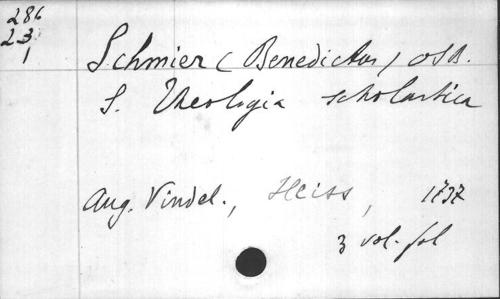 286
23
1
Schmier (Benedictus) OSB.
S. Theologia scholastica
Aug. Vindel., Heiss, 1737
3 vol. fol